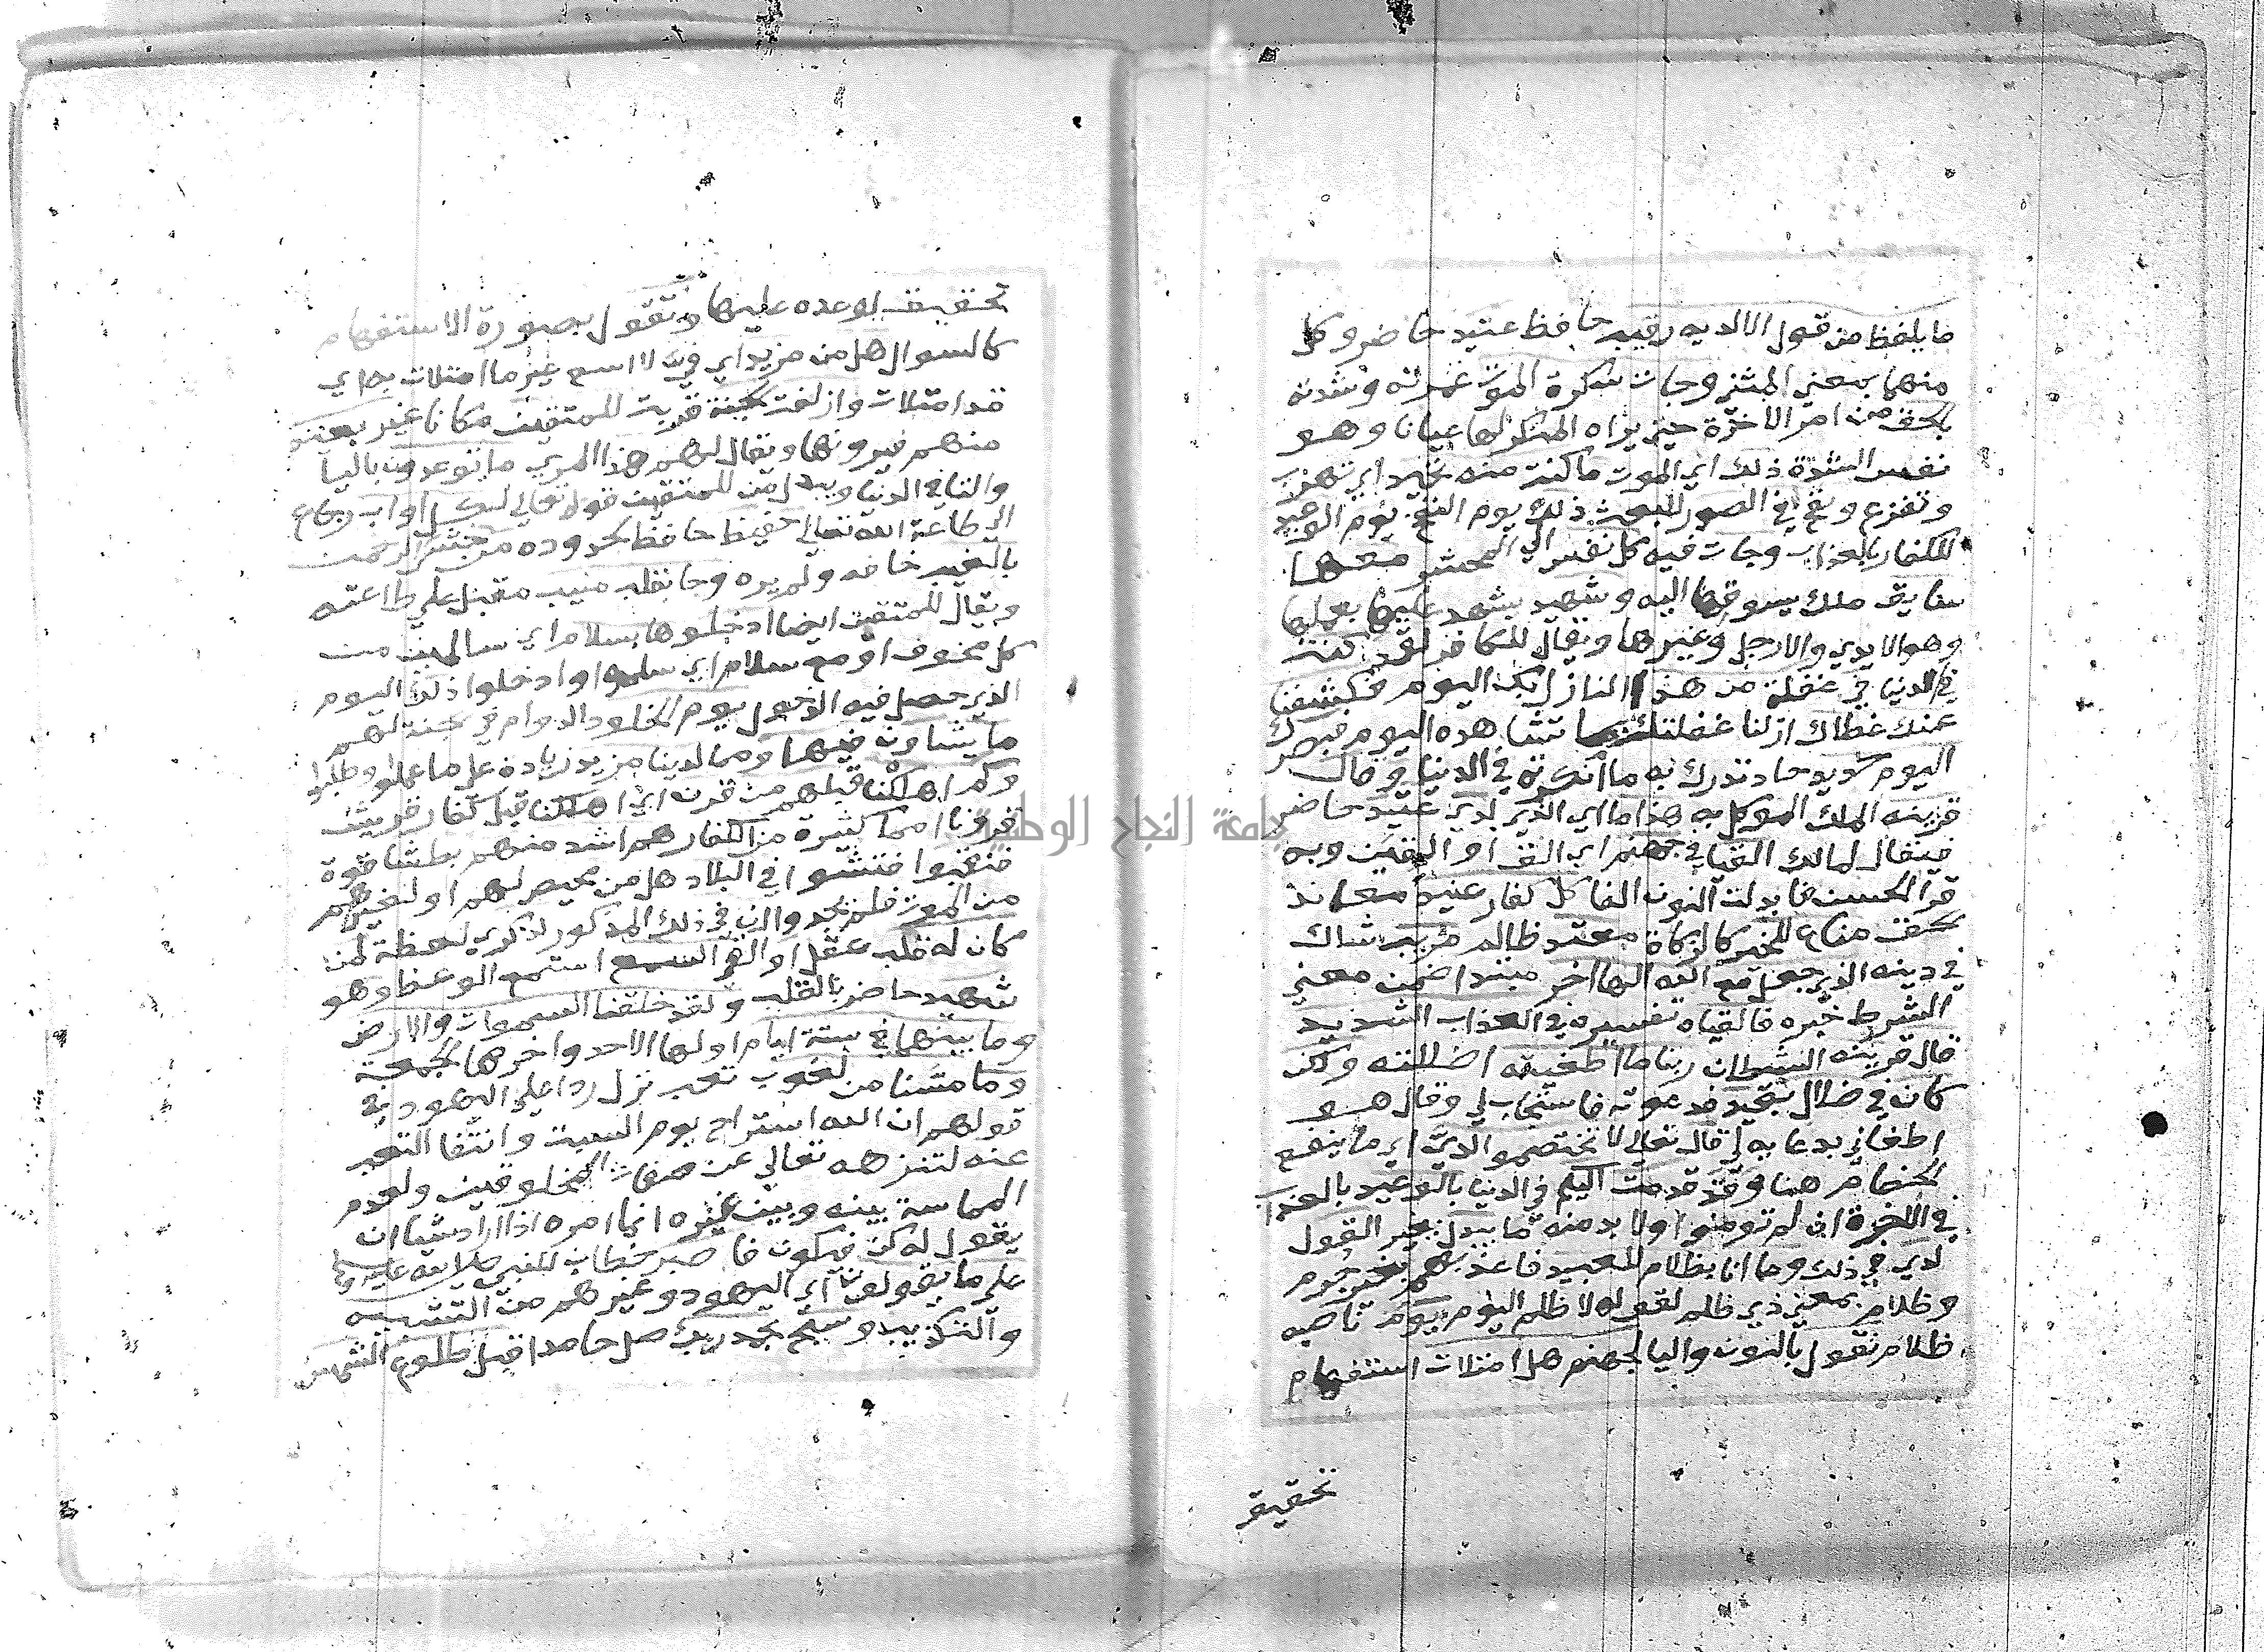 ما يلفظ من قول الا لديه رقيب حافظ عتيد حاضر وكل
منهما بمعني المثني وجات سكرة الموت غمرته وشدته
بالحق من امر الاخرة حين يراه المنكر لها عيانا وهو
نفس الشدة ذلك اي الموت ما كنت منه تحيد اي تهرب
وتفزع ونفخ في الصور للبعث ذلك يوم النفخ يوم الوعيد
للكفار بالعذاب وجات فيه كل نفس الي المحشر معها
سايق ملك يسوقها اليه وشهيد يشهد عليها بعملها
وهو الايدي والارجل وغيرها ويقال للكافر لقد كنت
في الدنيا في غفلة من هذا النازل بك اليوم فكشفنا
عنك غطاك ازلنا غفلتك بما تشاهده اليوم فبصرك
اليوم حديد حاد تدرك به ما انكرته في الدنيا وقال
قرينه الملك الموكل به هذا ما اي الذي لدي عتيد حاضر
فيقال لمالك القيا في جهنم اي الق او القين وبه
قرا الحسن فابدلت النون الفا كل كفار عنيد معاند
للحق مناع للخير كالزكاة معتد ظالم مريب شاك
في دينه الذي جعل مع الله الها اخر مبتدا ضمن معني
الشرط خبره فالقياه تفسيره في العذاب الشديد
قال قرينه الشيطان ربنا ما اطغيته اضللته ولكن
كان في ضلال بعيد فدعوته فاستجاب لي وقال هو
اطغاني بدعايه لي قال تعالي لا تختصموا لدي اي ما ينفع
الخصام هنا وقد قدمت اليكم في الدنيا بالوعيد بالعذاب
في الاخرة ان لم تومنوا ولا بد منه ما يبدل يغير القول
لدي في ذلك وما انا بظلام للعبيد فاعذبهم بغير جرم
وظلام بمعني ذي ظلم لقوله لا ظلم اليوم يوم ناصبه
ظلام نقول بالنون واليا لجهنم هل امتلات استفهام
تحقيق
تحقيق لوعده عليها وتقول بصورة الاستفهام
كالسوال هل من مزيد اي في لا اسع غير ما امتلات به اي
قد امتلات وازلفت الجنة قربت للمتقين مكانا غير بعيد
منهم فيرونها ويقال لهم هذا المري ما توعدون باليا
والتا في الدنيا ويبدل من للمتقين قوله تعالي لكل اواب رجاع
الي طاعة الله تعالي حفيظ حافظ لحدوده من خشي الرحمن
بالغيب خافه ولم يره وجا بقلب منيب مقبل علي طاعته
ويقال للمتقين ايضا ادخلوها بسلام اي سالمين من
كل مخوف او مع سلام اي سلموا وادخلوا ذلك اليوم
الذي حصل فيه الدخول يوم الخلود الدوام في الجنة لهم
ما يشاون فيها وما لدينا مزيد زيادة علي ما عملوا وطلبوا
وكم اهلكنا قبلهم من قرن اي اهلكنا قبل كفار قريش
قرونا امما كثيرة من الكفار هم اشد منهم بطشا قوة
فنقبوا فتشوا في البلاد هل من محيص لهم او لغيرهم
من الموت فلم يجدوا ان في ذلك المذكور لذكري لعظة لمن
كان له قلب عقل او القي السمع استمع الوعظ وهو
شهيد حاضر بالقلب ولقد خلقنا السموات والارض
وما بينهما في ستة ايام اولها الاحد واخرها الجمعة
وما مسنا من لغوب تعب نزل ردا علي اليهود في
قولهم ان الله استراح يوم السبت وانتفا التعب
عنه لتنزهه تعالي عن صفات المخلوقين ولعدم
المماسة بينه وبين غيره انما امره اذا اراد شيا ان
يقول له كن فيكون فاصبر خطاب للنبي صلي الله عليه وسلم
علي ما يقولون اي اليهود وغيرهم من التشبيه
والتكذيب وسبح بحمد ربك صل حامدا قبل طلوع الشمس
جامعة النجاح الوطنية